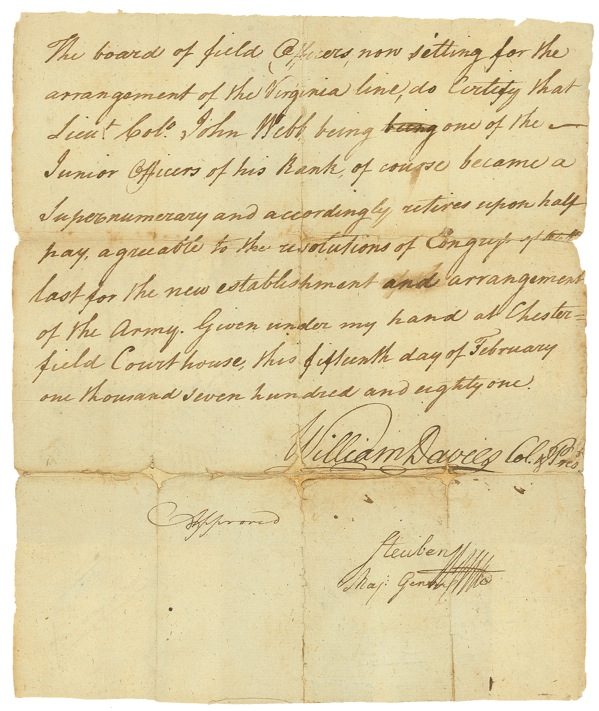 The board of field Officers, now sitting for the
arrangement of the Virginia line, do Certify that
Lieut. Colo. John Webb, being being one of the
Junior Officers of his Rank, of course became a
Supernumerary and accordingly retires upon half
pay, agreeable to the resolutions of Congress of
last for the new establishment and arrangement
of the Army. Given under my hand at Chester=
field Courthouse, this fifteenth day of February
one thousand seven hundred and eighty one.
William Davies Col. & Presd.
Approved
Steuben
Maj: General